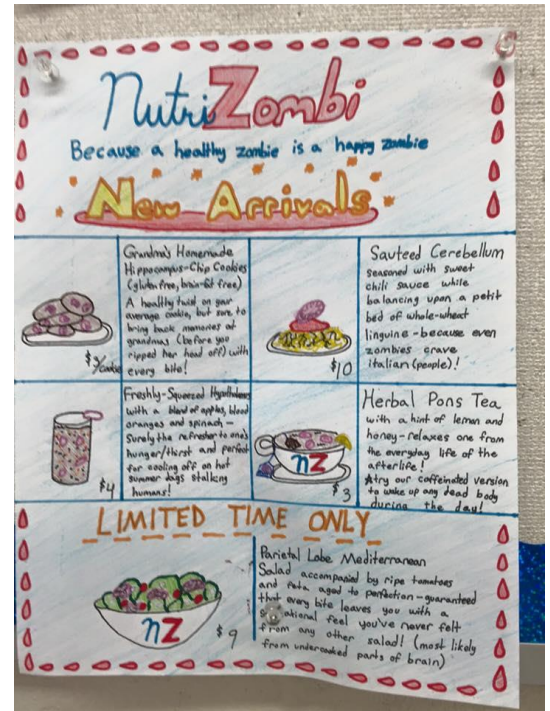 NutriZombi
Because a healthy zombie is a happy zombie
New Arrivals
Grandma's Homemade
Hippocampus-Chip Cookies
(gluten free, brain-fat free)
A healthy twist on your
average cookie, but sure to
bring back memories at
grandmas (before you
ripped her head off) with
every bite!
$3/cookie
Sauteed Cerebellum
seasoned with sweet
chili sauce while
balancing upon a petit
bed of whole-wheat
linguine - because even
zombies crave
italian (people)!
$10
Freshly-Squeezed Hypothalamus
with a blend of apples, blood
oranges and spinach -
Surely the refresher to one's
hunger/thirst and perfect
for cooling off on hot
summer days stalking
humans!
$4
Herbal Pons Tea
with a hint of lemon and
honey - relaxes one from
the everyday life of the
afterlife!
Try our caffeinated version
to wake up any dead body
during the day!
nZ
$3
LIMITED TIME ONLY
Parietal Lobe Mediterranean
Salad accompanied by ripe tomatoes
and feta, aged to perfection - guaranteed
that every bite leaves you with a
feel you've never felt
from any other salad! (most likely
from undercooked parts of brain)
nZ
$9